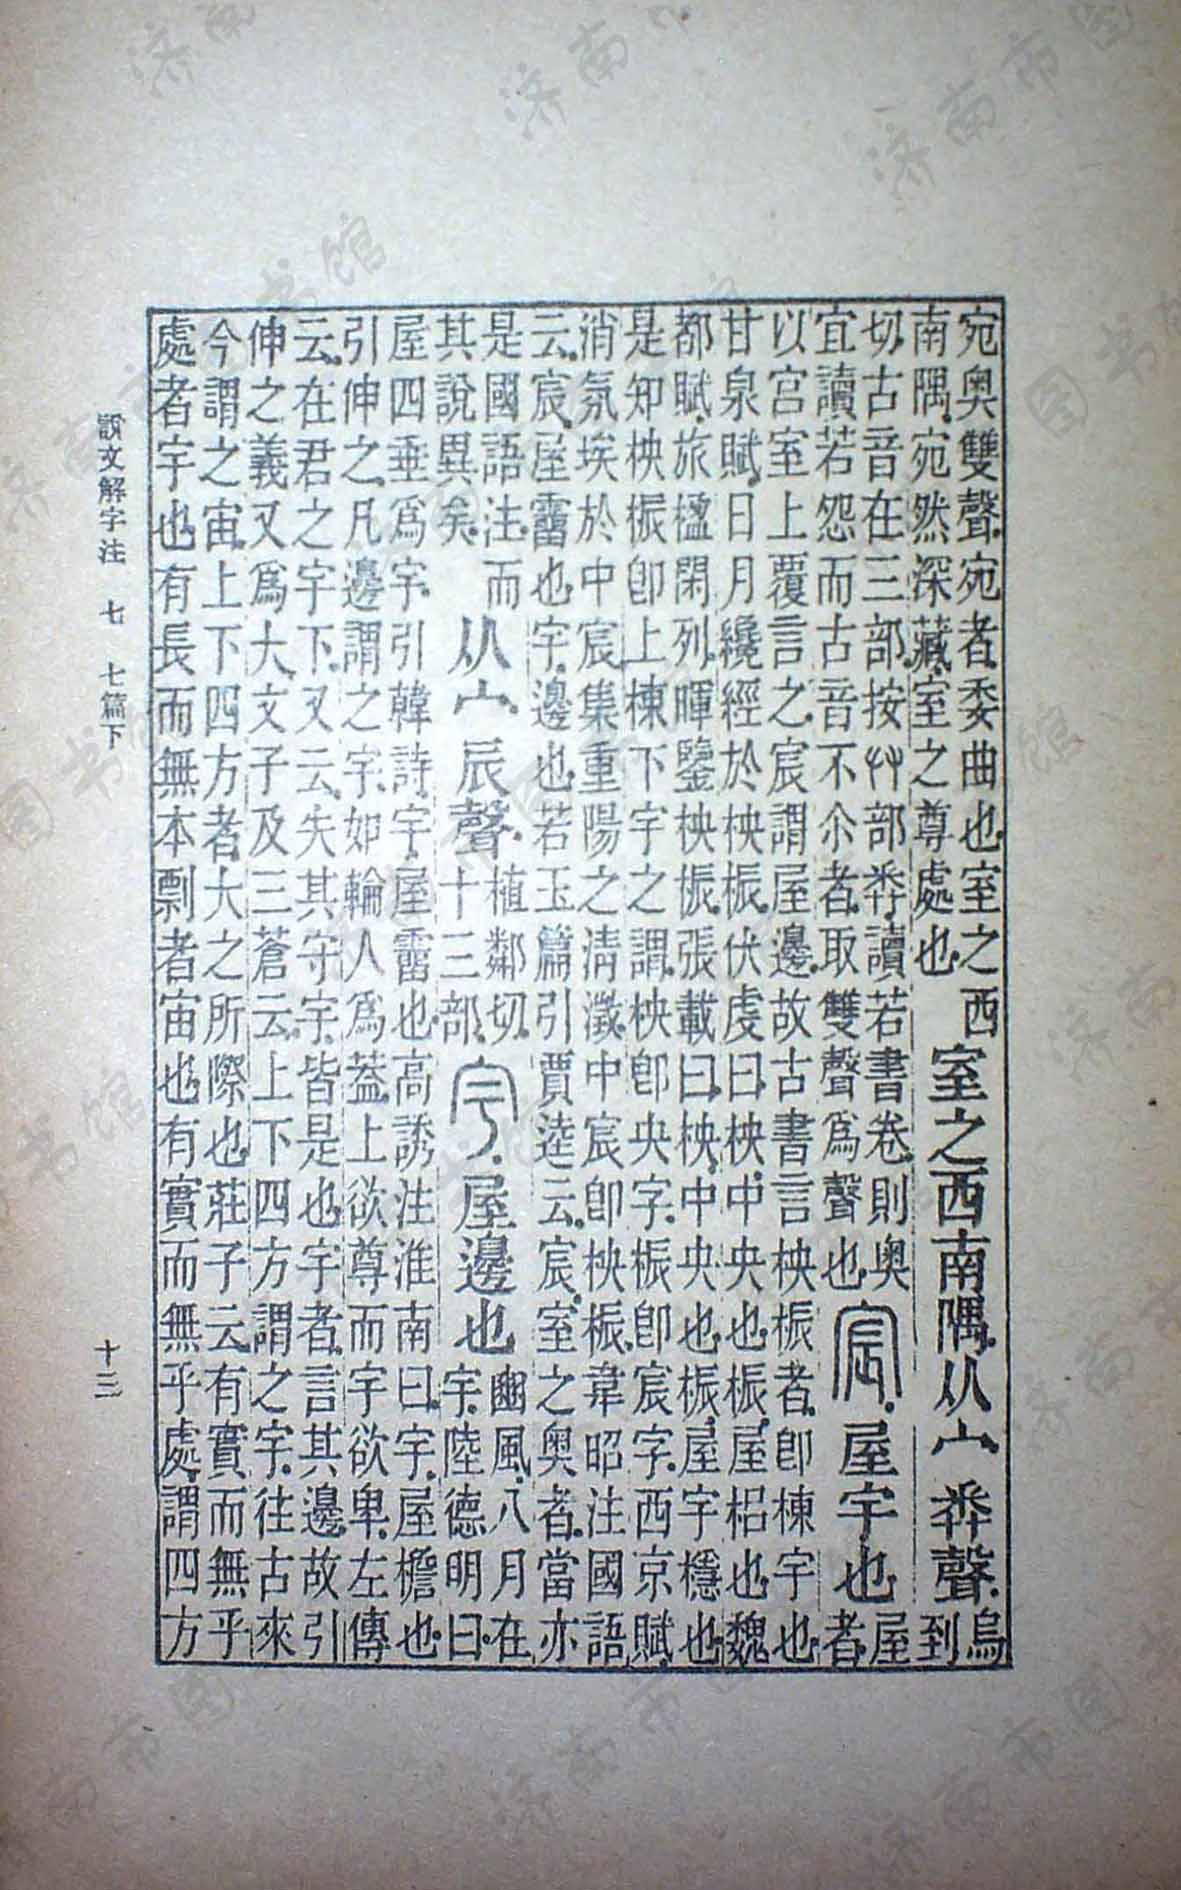 宛奥雙聲。宛者、委曲也。室之西
南隅。宛然深藏。室之尊處也。
室之西南隅。从宀𢍏聲。
烏
到
切。古音在三部。按艸部𢍏讀若書卷。則奥
宜讀若怨。而古音不尒者。取雙聲爲聲也。
宸。屋宇也。
屋
者。
以宫室上覆言之。宸謂屋邊。故古書言柍桭者。卽棟宇也。
甘泉賦。日月纔經於柍桭。伏虔曰。柍、中央也。桭、屋梠也。魏
都賦。旅楹閑列。暉鑒柍桭。張載曰。柍、中央也。桭、屋宇穩也。
是知柍桭卽上棟下宇之謂。柍卽央字。桭卽宸字。西京賦。
消氛埃於中宸。集重陽之淸瀓。中宸卽柍桭。韋昭注國語
云。宸、屋霤也。宇、邊也。若玉篇引賈逵云。宸、室之奥者。當亦
是國語注。而
其說異矣。
从宀。辰聲。
植鄰切。
十三部。
宇。屋邊也。
豳風。八月在
宇。陸德明曰。
屋四垂爲宇。引韓詩。宇、屋霤也。高誘注淮南曰。宇、屋檐也。
引伸之凡邊謂之宇。如輪人爲葢。上欲尊而宇欲卑。左傳
云。在君之宇下。又云。失其守宇。皆是也。宇者、言其邊。故引
伸之義又爲大。文子及三蒼云。上下四方謂之宇。往古來
今謂之宙。上下四方者、大之所際也。莊子云。有實而無乎
處者、宇也。有長而無本剽者、宙也。有實而無乎處、謂四方
說文解字注 七 七篇下
十三